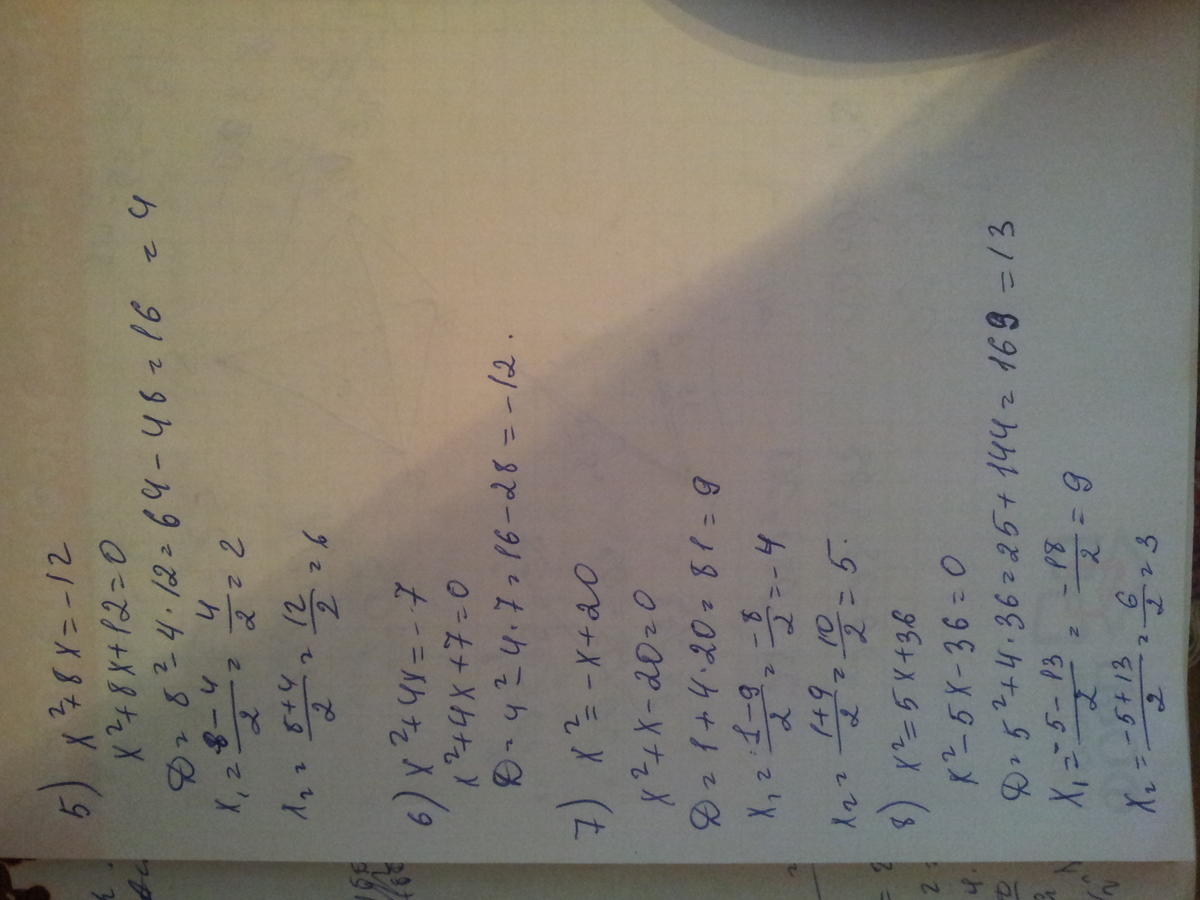 5) x²+8x=-12
x²+8x+12=0
D=8²-4·12=64-48=16 =4
x₁=(8-4)/2=4/2=2
x₂=(8+4)/2=12/2=6
6) x²+4x=-7
x²+4x+7=0
D=4²-4·7=16-28=-12.
7) x²=-x+20
x²+x-20=0
D=1+4·20=81=9
x₁=(1-9)/2=-8/2=-4
x₂=(1+9)/2=10/2=5.
8) x²=5x+36
x²-5x-36=0
D=5²+4·36=25+144=169=13
x₁=(-5-13)/2=-18/2=9
x₂=(-5+13)/2=6/2=3